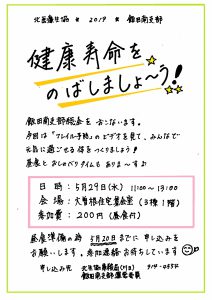 北医療生協 ★ 2019 ★ 飯田南支部
健康寿命を
のばしましょ〜う!
飯田南支部総会を おこないます。
今回は「フレイル予防」のビデオを見て、みんなで
元気に過ごせる体をつくりましょう!
昼食と おしゃべりタイムも ありま〜すよ
日 時: 5月29日(水) 11:00〜13:00
会 場: 大曽根住宅集会室 (3棟1階)
参加費: 200円 (昼食付)
昼食準備の為 5月20日までに 申し込みを
お願いします。参加連絡お待ちしています
申し込み先